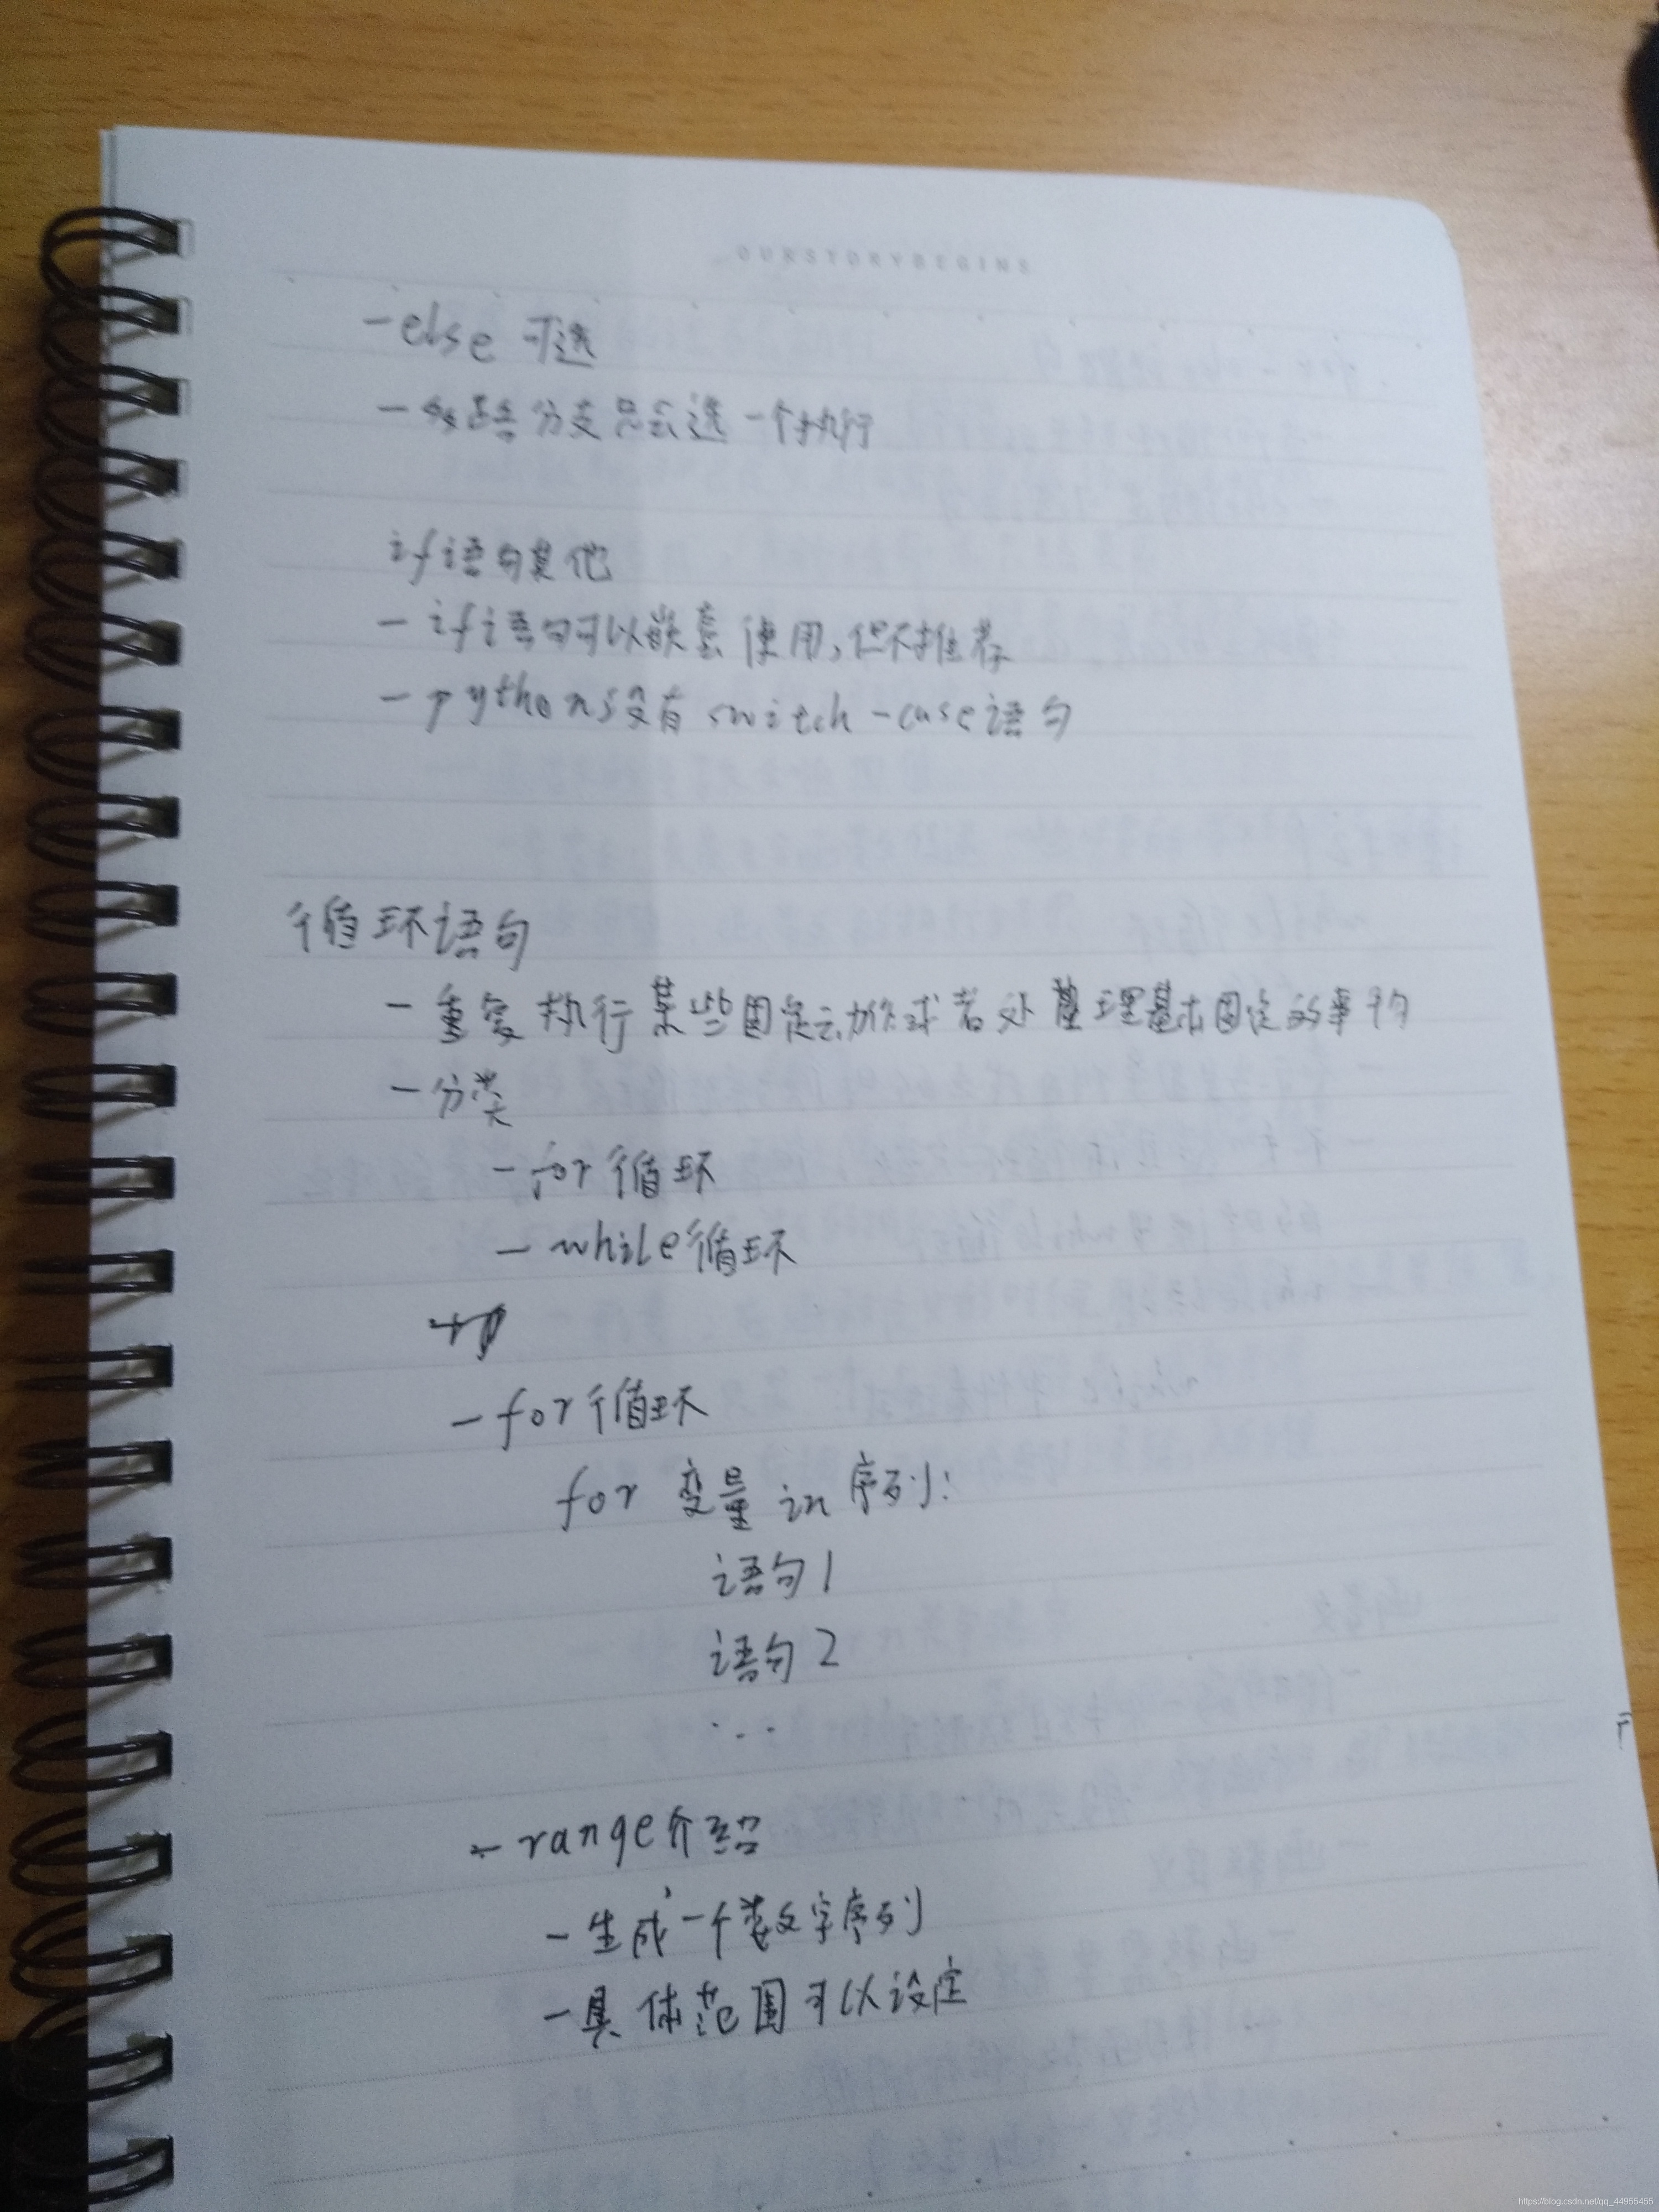 OURSTORYBEGINS
-else 可选
-多路分支只会选一个执行
if语句其他
-if语句可以嵌套使用,但不推荐
-python没有switch-case语句
循环语句
-重复执行某些固定动作或者处理基本固定的事物
-分类
-for循环
-while循环
-for循环
for 变量 in 序列:
语句1
语句2
...
-range介绍
-生成一个数字序列
-具体范围可以设定
https://blog.csdn.net/qq_44955455